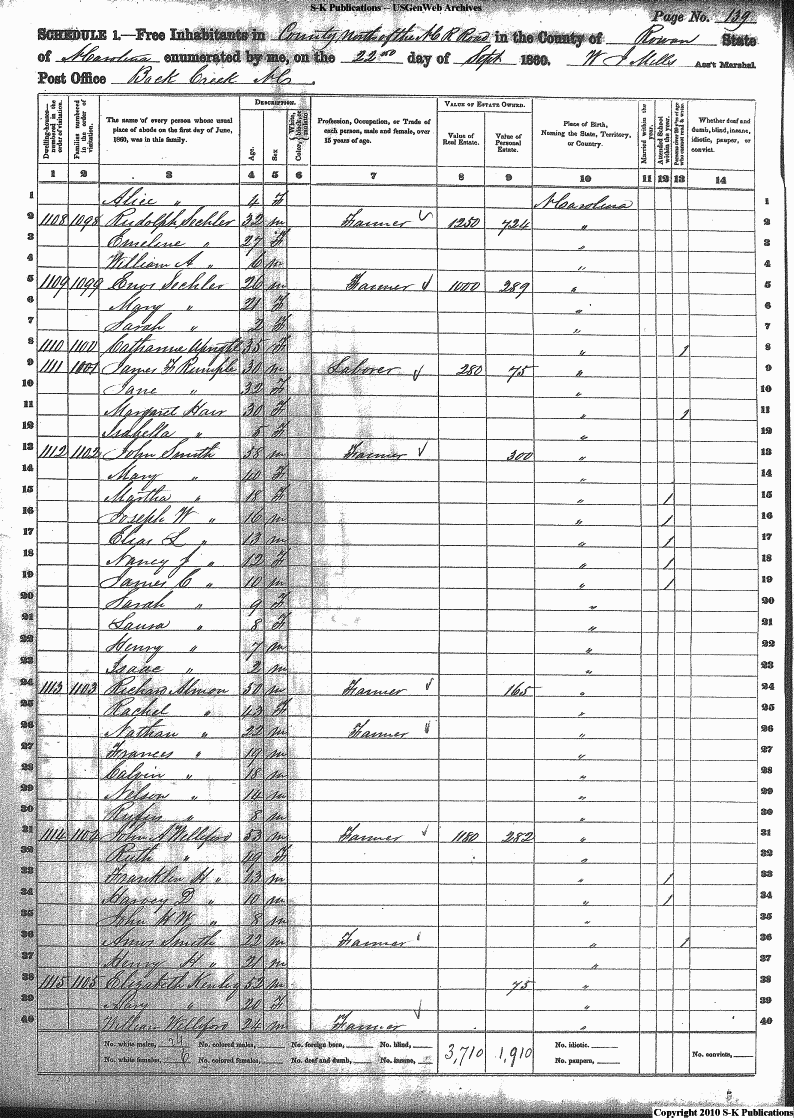 S-K Publications -- USGenWeb Archives
Page No. 139
SCHEDULE 1.—Free Inhabitants in County North of the N C R Road in the County of Rowan State
of N Carolina enumerated by me, on the 22nd day of Sept 1860. W J Mills Ass't Marshal.
Post Office Back Creek N C.
Dwelling-house—numbered in the order of visitation.
Families numbered in the order of visitation.
The name of every person whose usual place of abode on the first day of June, 1860, was in this family.
DESCRIPTION.
Age.
Sex
Color, {White, black, or mulatto
Profession, Occupation, or Trade of each person, male and female, over 15 years of age.
VALUE OF ESTATE OWNED.
Value of Real Estate.
Value of Personal Estate.
Place of Birth, Naming the State, Territory, or Country.
Married within the year.
Attended School within the year.
Persons over 20 y'rs of age who cannot read & write
Whether deaf and dumb, blind, insane, idiotic, pauper, or convict.
1 2 3 4 5 6 7 8 9 10 11 12 13 14
1 Alice " 4 F N Carolina 1
2 1108 1098 Rudolph Sechler 32 m Farmer 1250 724 " 2
3 Emeline " 27 F " 3
4 William A " 6 m " 4
5 1109 1099 Sechler 26 m Farmer 1000 289 " 5
6 Mary " 21 F " 6
7 Sarah " 2 F " 7
8 1110 1100 Catharine 35 F " 1 8
9 1111 1101 James F Rumple 30 m Laborer 280 75 " 9
10 Jane " 32 F " 10
11 Margaret Hair 30 F " 1 11
12 Isabella " 5 F " 12
13 1112 1102 John Smith 38 m Farmer 300 " 13
14 Mary " 40 F " 14
15 Martha " 18 F " / 15
16 Joseph W " 16 m " / 16
17 Elias L " 13 m " / 17
18 Nancy J " 12 F " / 18
19 James C " 10 m " / 19
20 Sarah " 9 F " 20
21 Laura " 8 F " 21
22 Henry " 7 m " 22
23 Isaac " 2 m " 23
24 1113 1103 Richard Almon 50 m Farmer 165 " 24
25 Rachel " 43 F " 25
26 Nathan " 22 m Farmer " 26
27 Frances " 19 m " 27
28 Calvin " 18 m " 28
29 Nelson " 14 m " 29
30 Rufus " 8 m " 30
31 1114 1104 John A Williford 53 m Farmer 1180 282 " 31
32 Ruth " 49 F " 32
33 Franklin H " 13 m " / 33
34 Harvey D " 10 m " / 34
35 John H W " 8 m " 35
36 Amos Smith 22 m Farmer " 1 36
37 Henry H " 21 m " 37
38 1115 1105 Elizabeth 52 m 75 " 38
39 Mary " 20 F " 39
40 William Williford 24 m Farmer " 40
No. white males, 24 No. colored males, No. foreign born, No. blind, 3,710 1,910 No. idiotic. No. convicts,
No. white females, No. colored females, No. deaf and dumb, No. insane, No. paupers,
Copyright 2010 S-K Publications